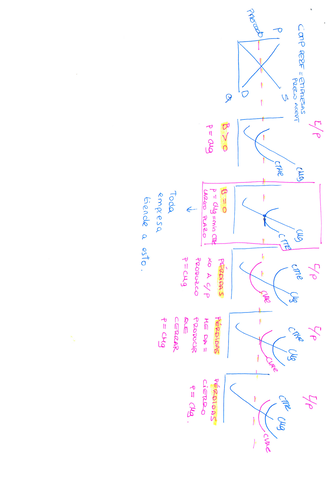 COMP PERF = EMPRESAS
PRECIO ACEPT
MERCADO
P
O
S
Q
C/P
CMg
CTMe
B > 0
P = CMg
CMg
CTMe
B = 0
P = CMg = min CTMe
LARGO PLAZO
Toda
empresa
tiende a esto.
C/P
CTMe
CMg
CVMe
PÉRDIDAS
NO A L/P
PRODUZCO
P = CMg
C/P
CTMe
CMg
CVMe
PÉRDIDAS
ME DA =
PRODUCIR
QUE
CERRAR
P = CMg
C/P
CTMe
CMg
CVMe
PÉRDIDAS
CIERRO
P = CMg.